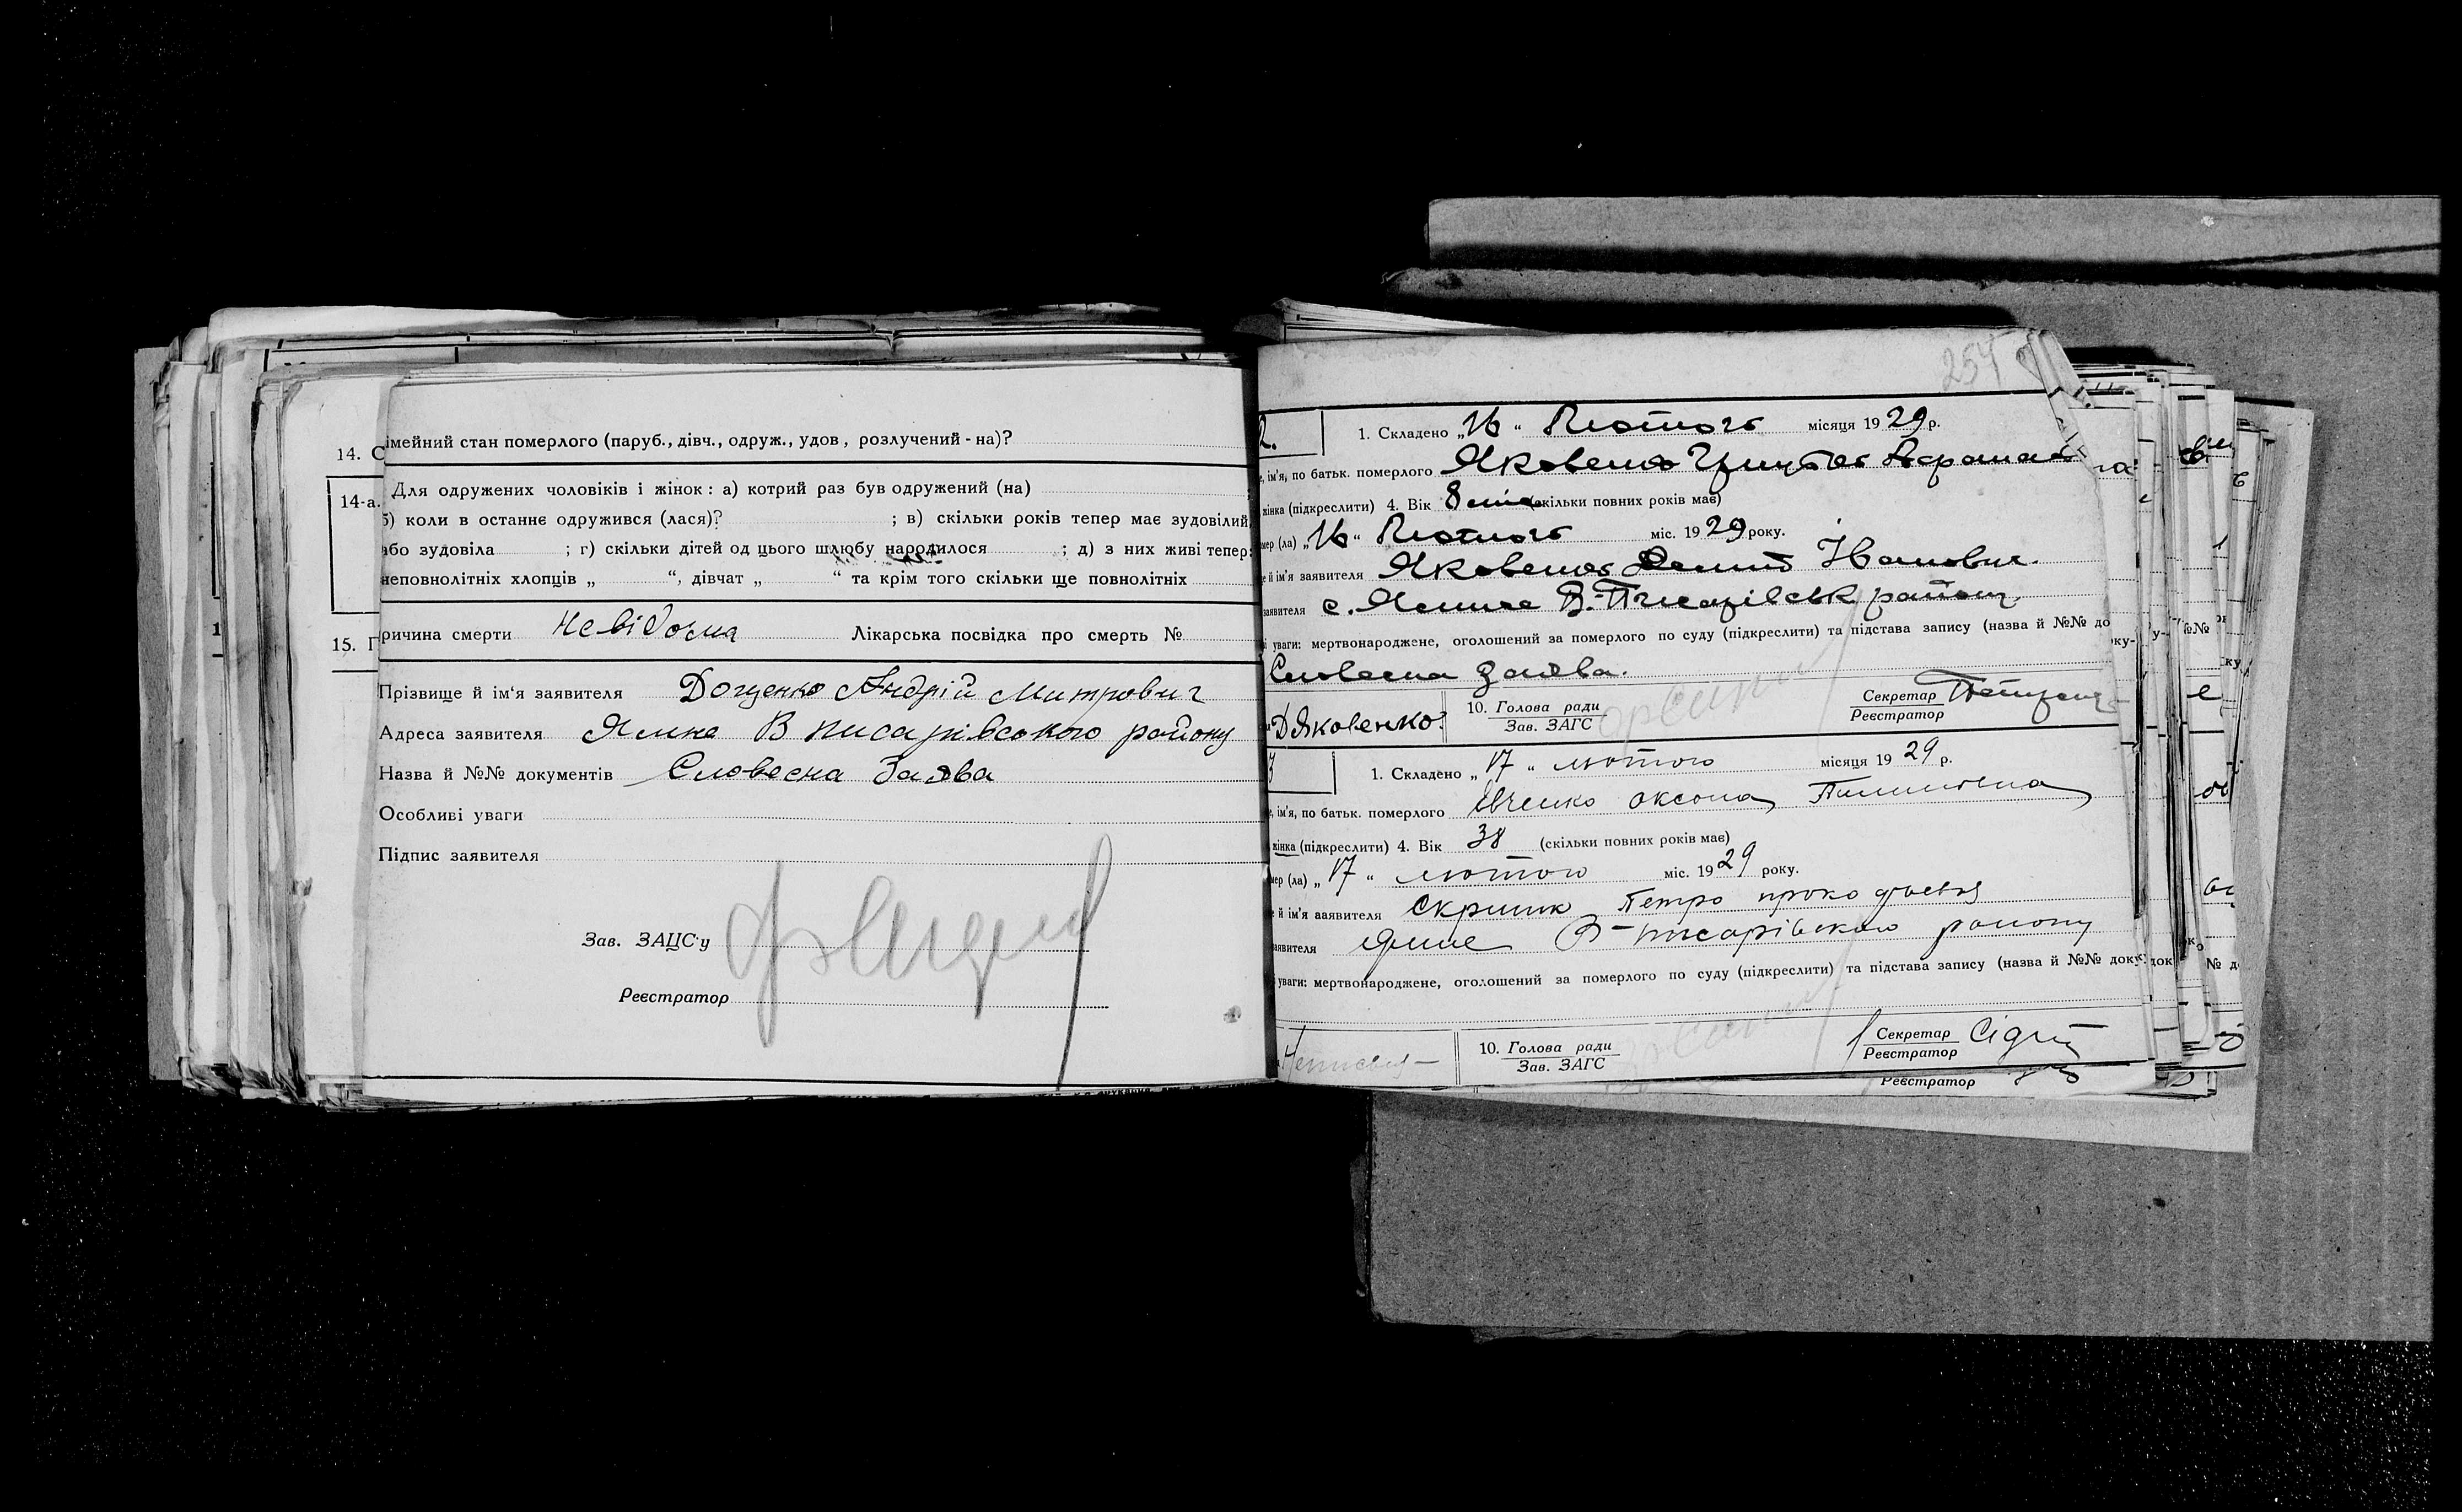 14. С
імейний стан померлого (паруб., дівч., одруж., удов, розлучений - на)?
14-а.
Для одружених чоловіків і жінок: а) котрий раз був одружений (на)
б) коли в останнє одружився (лася)? ; в) скільки років тепер має зудовілий
або зудовіла ; г) скільки дітей од цього шлюбу народилося ; д) з них живі тепер:
неповнолітніх хлопців „ “, дівчат „ “ та крім того скільки ще повнолітніх
15. П
ричина смерти невідома Лікарська посвідка про смерть №
Прізвище й ім‘я заявителя Доценко Андрій Митрович
Адреса заявителя Ямне В Писарівського району
Назва й №№ документів Словесна Заява
Особливі уваги
Підпис заявителя
Зав. ЗАЦС‘у
Реєстратор
254
2.
1. Складено „16“ Лютого місяця 1929 р.
е, ім‘я, по батьк. померлого Яковенко
жінка (підкреслити) 4. Вік 8 (скільки повних років має)
мер (ла) „16“ Лютого міс. 1929 року.
е й ім‘я заявителя Яковенко Демид Іванович.
заявителя с. Ямне В.-Писарівськ району
і уваги: мертвонароджене, оголошений за померлого по суду (підкреслити) та підстава запису (назва й №№ до
Словесна Заява.
ДЯковенко.
10. Голова ради
Зав. ЗАГС
Секретар
Реєстратор
3
1. Складено „17“ лютого місяця 1929 р.
е, ім‘я, по батьк. померлого Івченко Оксана
жінка (підкреслити) 4. Вік 38 (скільки повних років має)
мер (ла) „17“ лютого міс. 1929 року.
е й ім‘я заявителя Скрипник Петро
заявителя Ямне В-Писарівського району
уваги: мертвонароджене, оголошений за померлого по суду (підкреслити) та підстава запису (назва й №№ доку
10. Голова ради
Зав. ЗАГС
Секретар
Реєстратор
Реєстратор